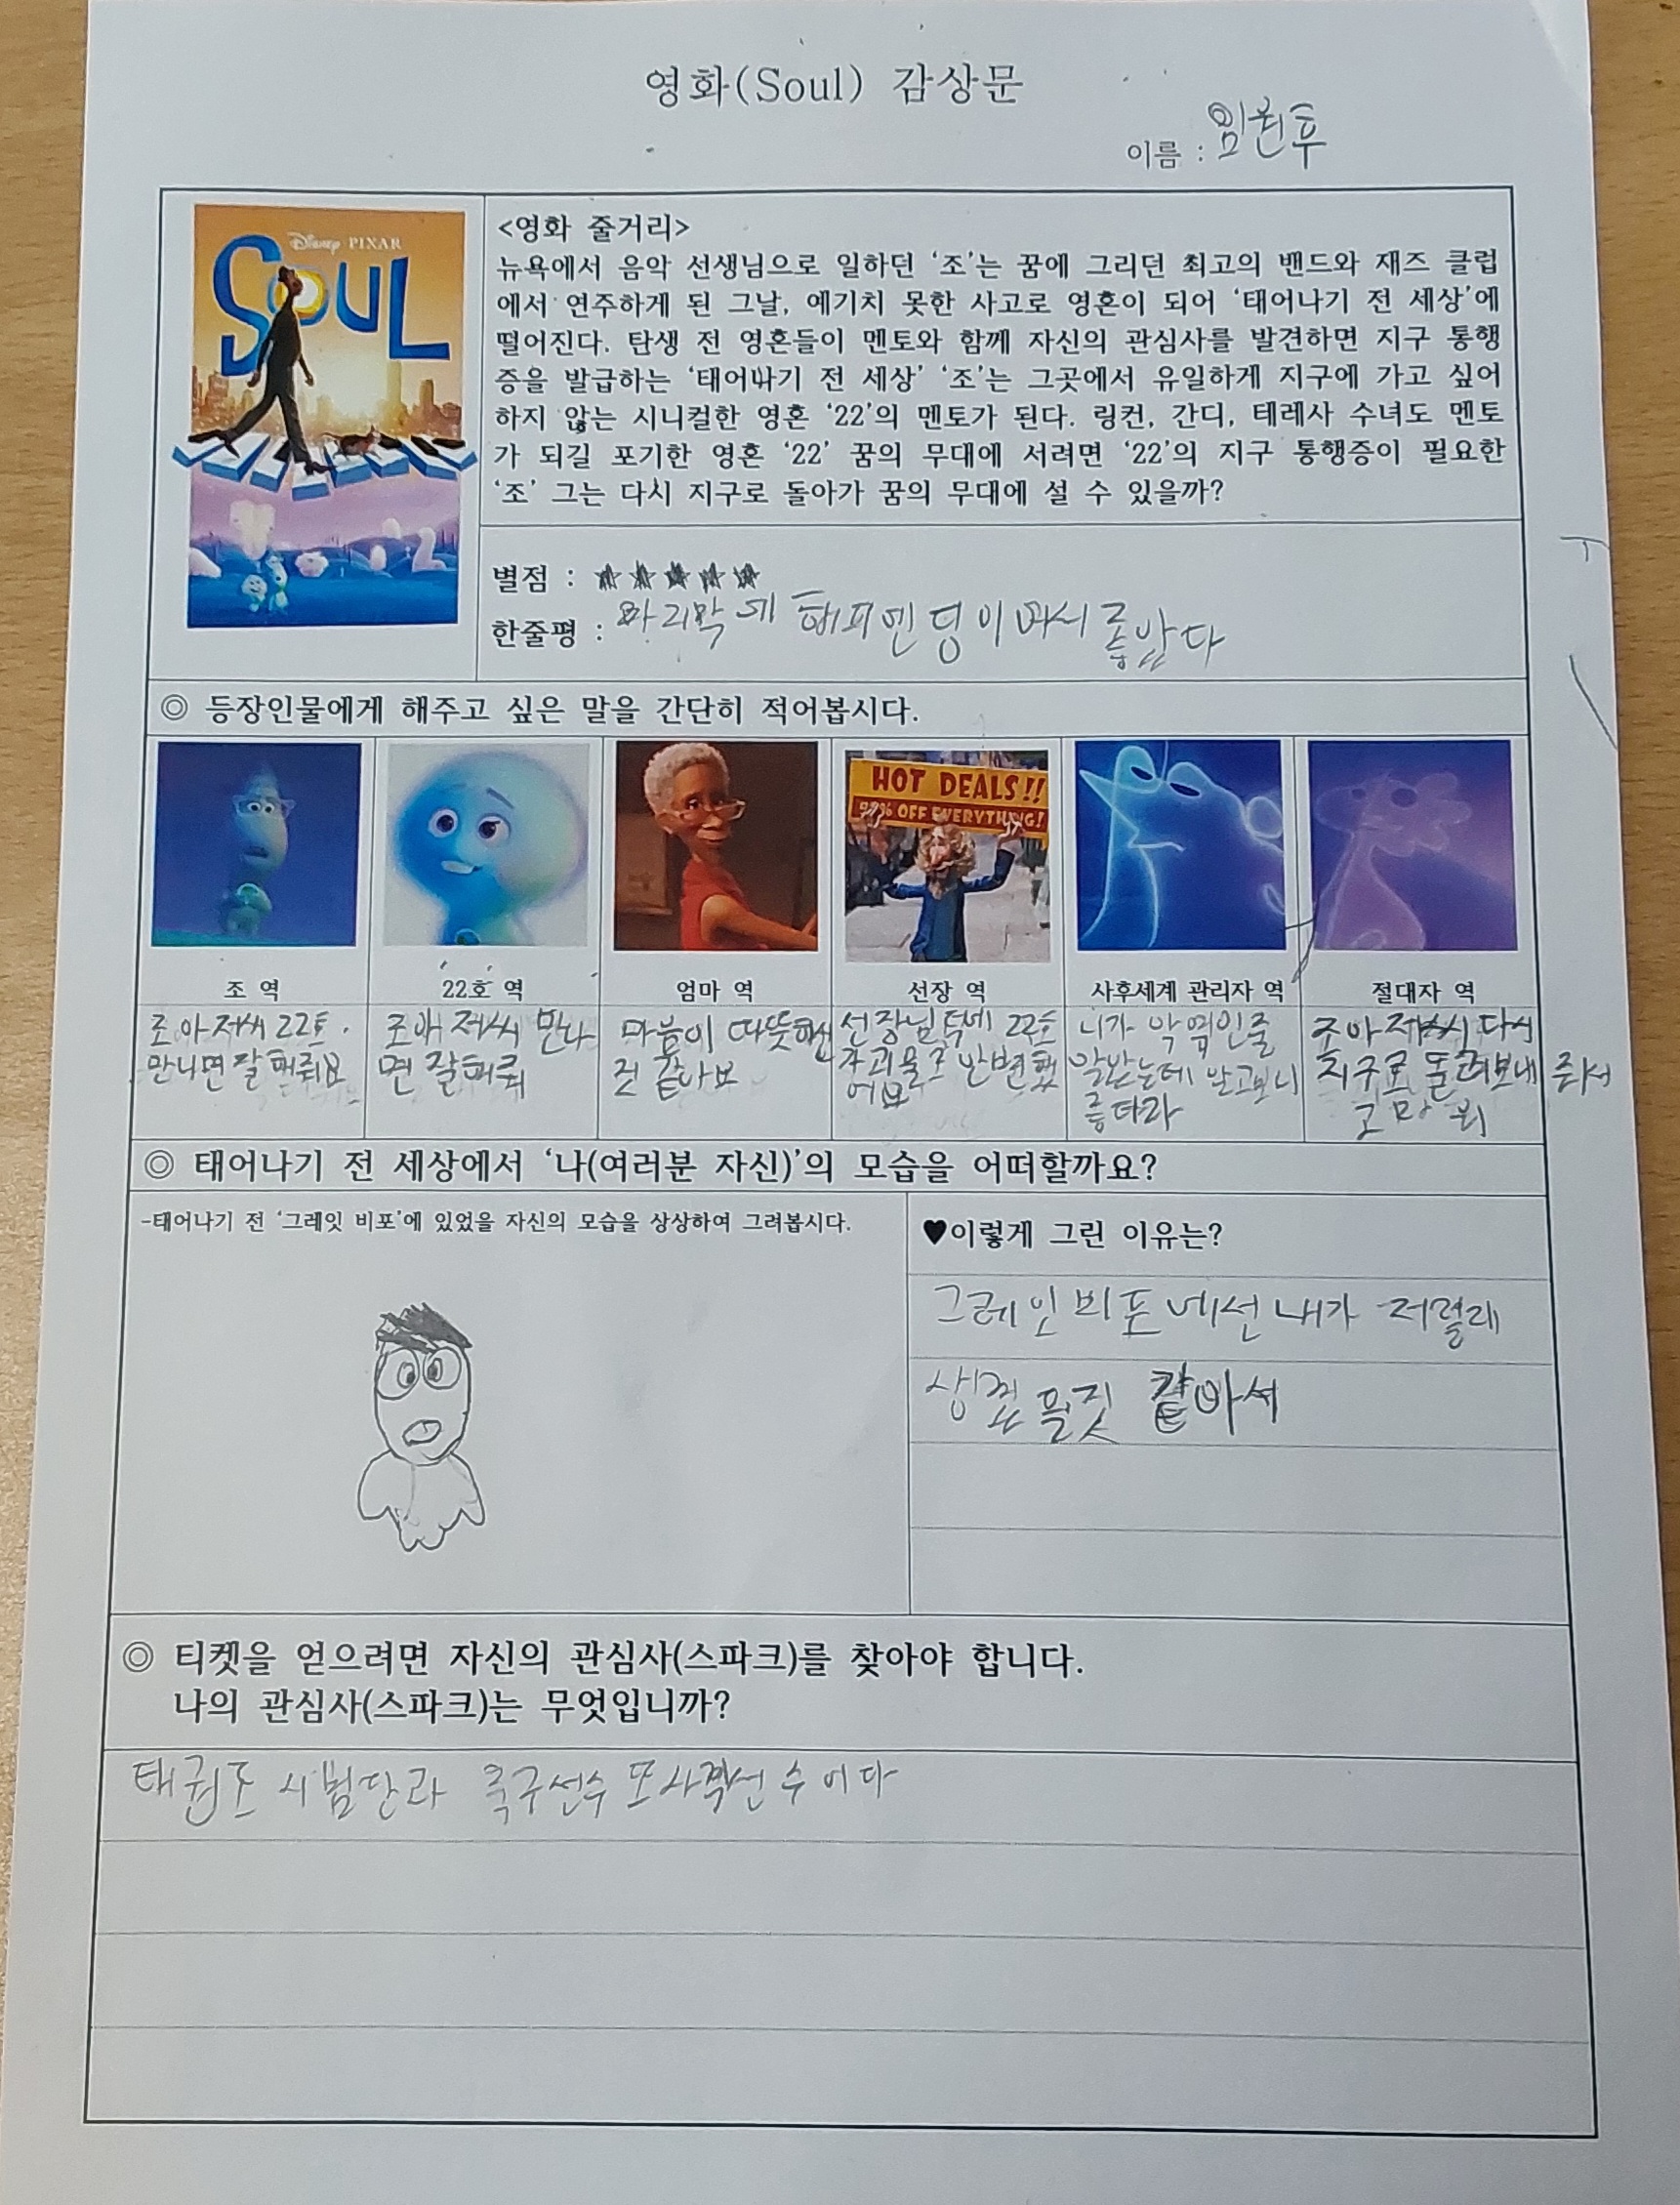 영화(Soul) 감상문
이름 : 임훤후
Disney PIXAR
SOUL
<영화 줄거리>
뉴욕에서 음악 선생님으로 일하던 ‘조’는 꿈에 그리던 최고의 밴드와 재즈 클럽
에서 연주하게 된 그날, 예기치 못한 사고로 영혼이 되어 ‘태어나기 전 세상’에
떨어진다. 탄생 전 영혼들이 멘토와 함께 자신의 관심사를 발견하면 지구 통행
증을 발급하는 ‘태어나기 전 세상’ ‘조’는 그곳에서 유일하게 지구에 가고 싶어
하지 않는 시니컬한 영혼 ‘22’의 멘토가 된다. 링컨, 간디, 테레사 수녀도 멘토
가 되길 포기한 영혼 ‘22’ 꿈의 무대에 서려면 ‘22’의 지구 통행증이 필요한
‘조’ 그는 다시 지구로 돌아가 꿈의 무대에 설 수 있을까?
별점 : ★★★★★
한줄평 : 마지막에 해피엔딩이여서 좋았다
◎ 등장인물에게 해주고 싶은 말을 간단히 적어봅시다.
HOT DEALS!!
% OFF EVERYTHING!
조 역
22호 역
엄마 역
선장 역
사후세계 관리자 역
절대자 역
조아저씨 22호
만나면 잘해줘요
조아저씨 만나
면 잘해줘
마음이 따뜻하신
것 같아요
선장님 덕에 22호
가 괴물로 안변했
어요
니가 악역인줄
알았는데 알고보니
좋더라
조아저씨 다시
지구로 돌려보내 줘서
고마워
◎ 태어나기 전 세상에서 ‘나(여러분 자신)’의 모습을 어떠할까요?
-태어나기 전 ‘그레잇 비포’에 있었을 자신의 모습을 상상하여 그려봅시다.
♥이렇게 그린 이유는?
그레잇 비포에선 내가 저럴래
생겼을것 같아서
◎ 티켓을 얻으려면 자신의 관심사(스파크)를 찾아야 합니다.
나의 관심사(스파크)는 무엇입니까?
태권도 시범단과 축구선수 또 사격선수이다